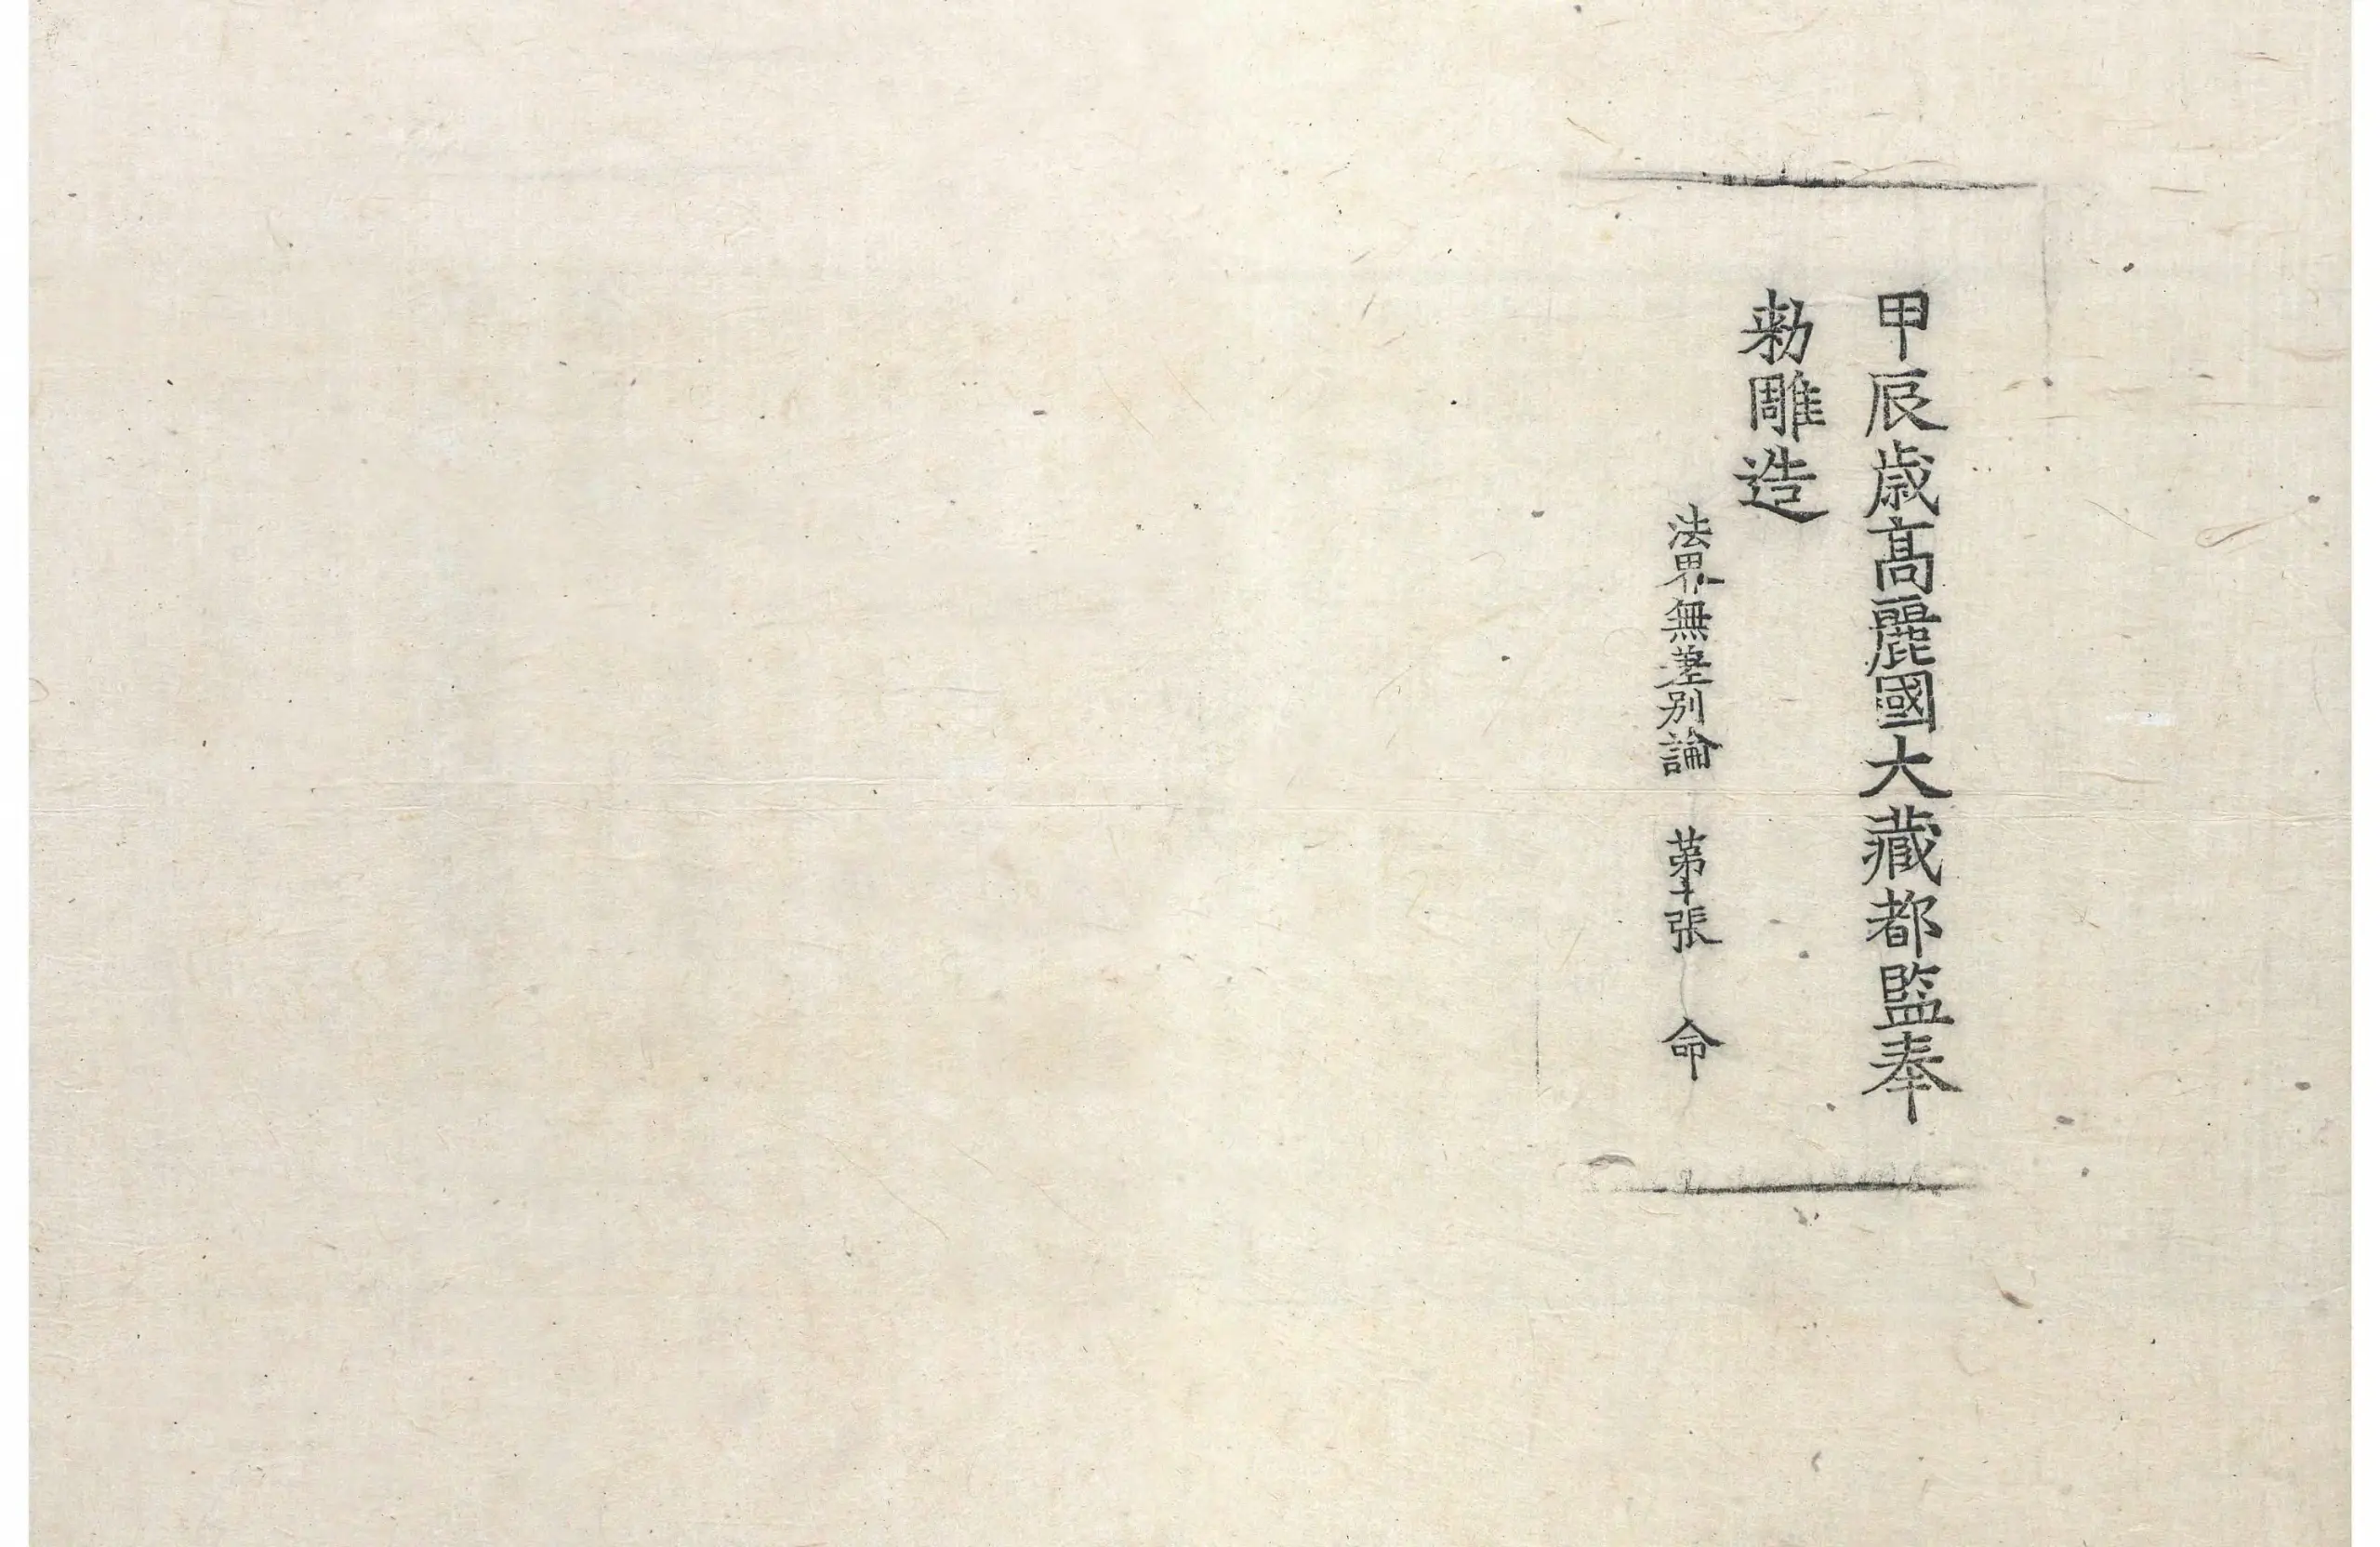 甲辰歲高麗國大藏都監奉
勅雕造
法界無差別論　第十張　命